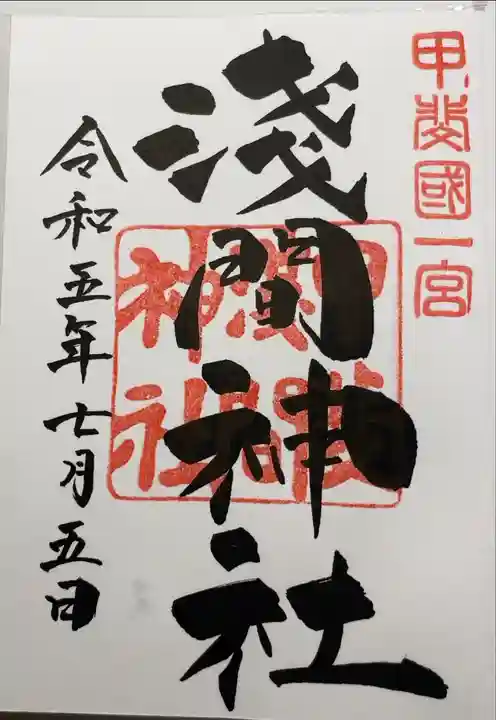 甲斐國一宮
淺間神社
令和五年七月五日